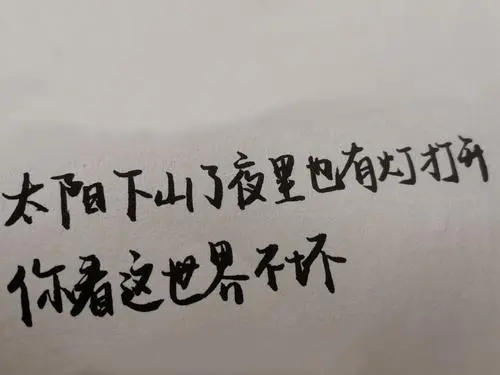 太阳下山了夜里也有灯打开
你看这世界不坏